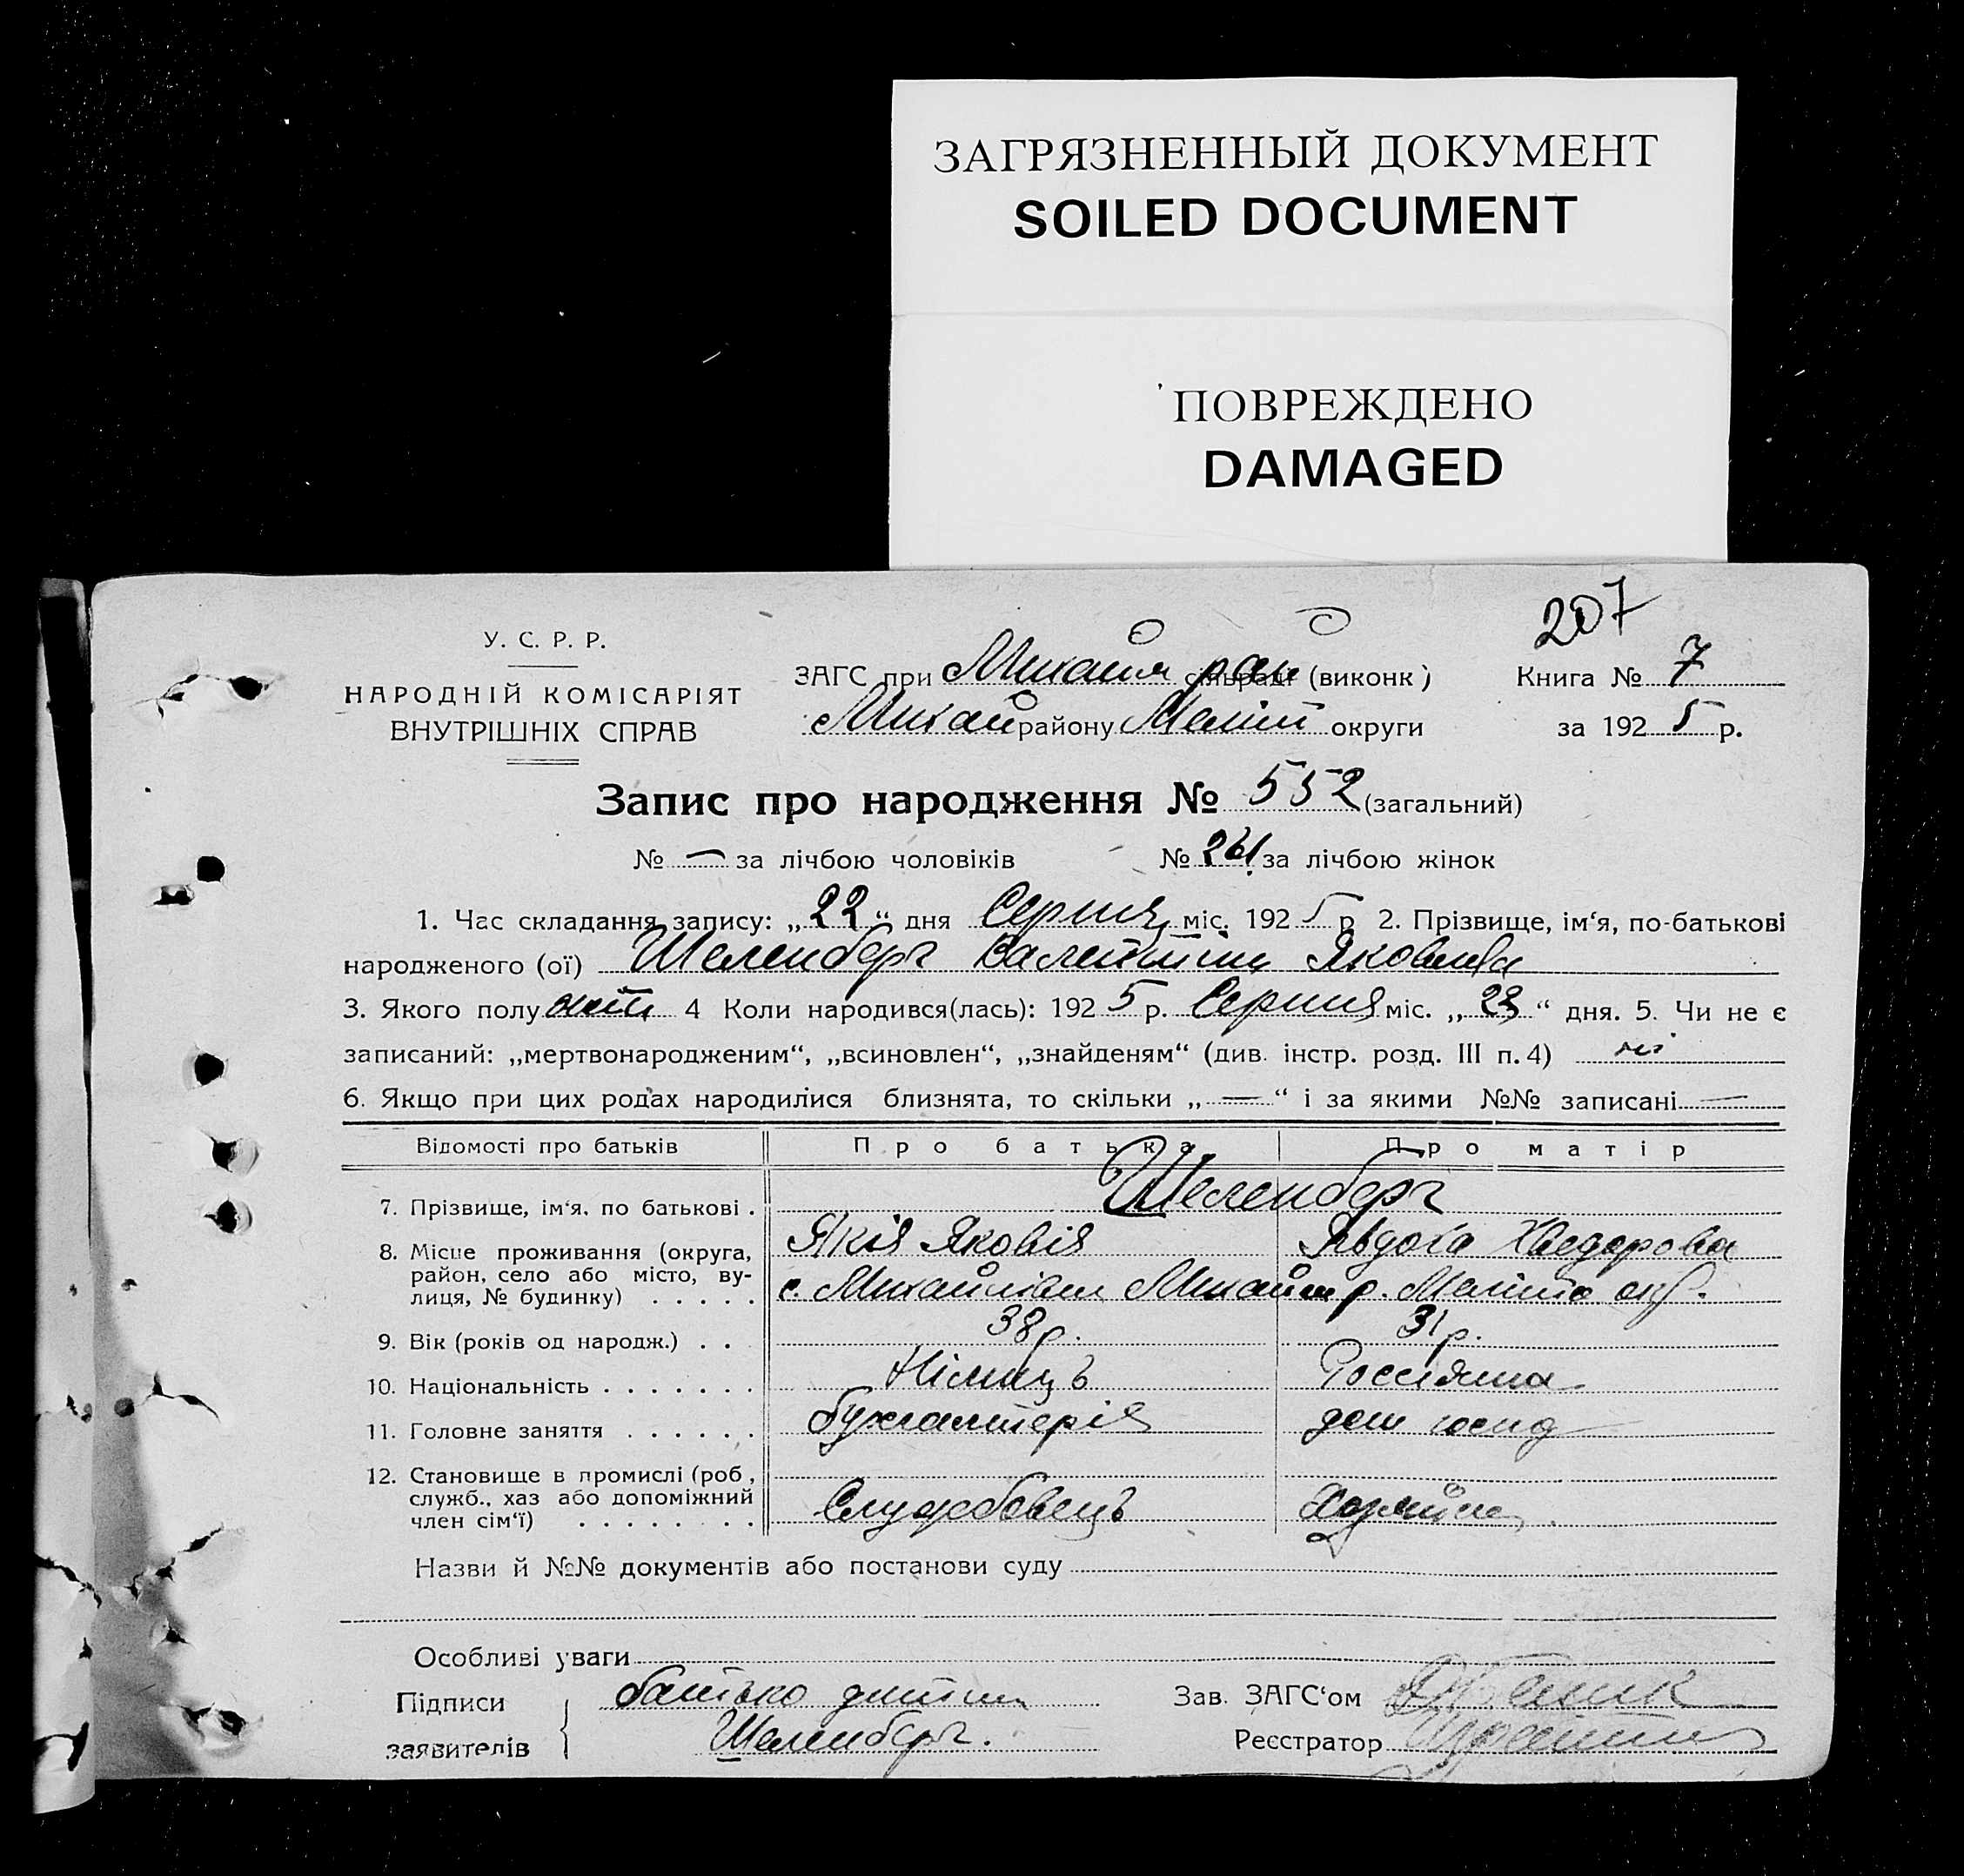 ЗАГРЯЗНЕННЫЙ ДОКУМЕНТ
SOILED DOCUMENT
ПОВРЕЖДЕНО
DAMAGED
207
У. С. Р. Р.
НАРОДНІЙ КОМІСАРІЯТ
ВНУТРІШНІХ СПРАВ
ЗАГС при Михайл рай сільраді (виконк) Книга № 7
Михай району Меліт округи за 1925 р.
Запис про народження № 552 (загальний)
№ — за лічбою чоловіків № 261 за лічбою жінок
1. Час складання запису: „22“ дня Серпня міс. 1925 р 2. Прізвище, ім‘я, по-батькові
народженого (ої) Шеленберг Валентина Яковлева
3. Якого полу жіт 4 Коли народився(лась): 1925 р. Серпня міс. „23“ дня. 5. Чи не є
записаний: „мертвонародженим“, „всиновлен“, „знайденям“ (див. інстр. розд. III п. 4) ні
6. Якщо при цих родах народилися близнята, то скільки „—“ і за якими №№ записані —
Відомості про батьків Про батька Про матір
7. Прізвище, ім‘я, по батькові . Шеленберг
Якія Яковія Явдоха Хведорова
8. Місце проживання (округа, район, село або місто, вулиця, № будинку) . . . . . с. Михайлівка Михайл р. Меліто окр.
9. Вік (років од народж.) . . 38 р. 31 р.
10. Національність . . . . . . . Німиць Россіянка
11. Головне заняття . . . . . . бухгалтерія дом госпд
12. Становище в промислі (роб, служб., хаз або допоміжний член сім‘ї) . . . . . . . . Службовець Хозяйка
Назви й №№ документів або постанови суду
Особливі уваги
Підписи заявителів батько дитини
Шеленберг.
Зав. ЗАГС‘ом
Реєстратор